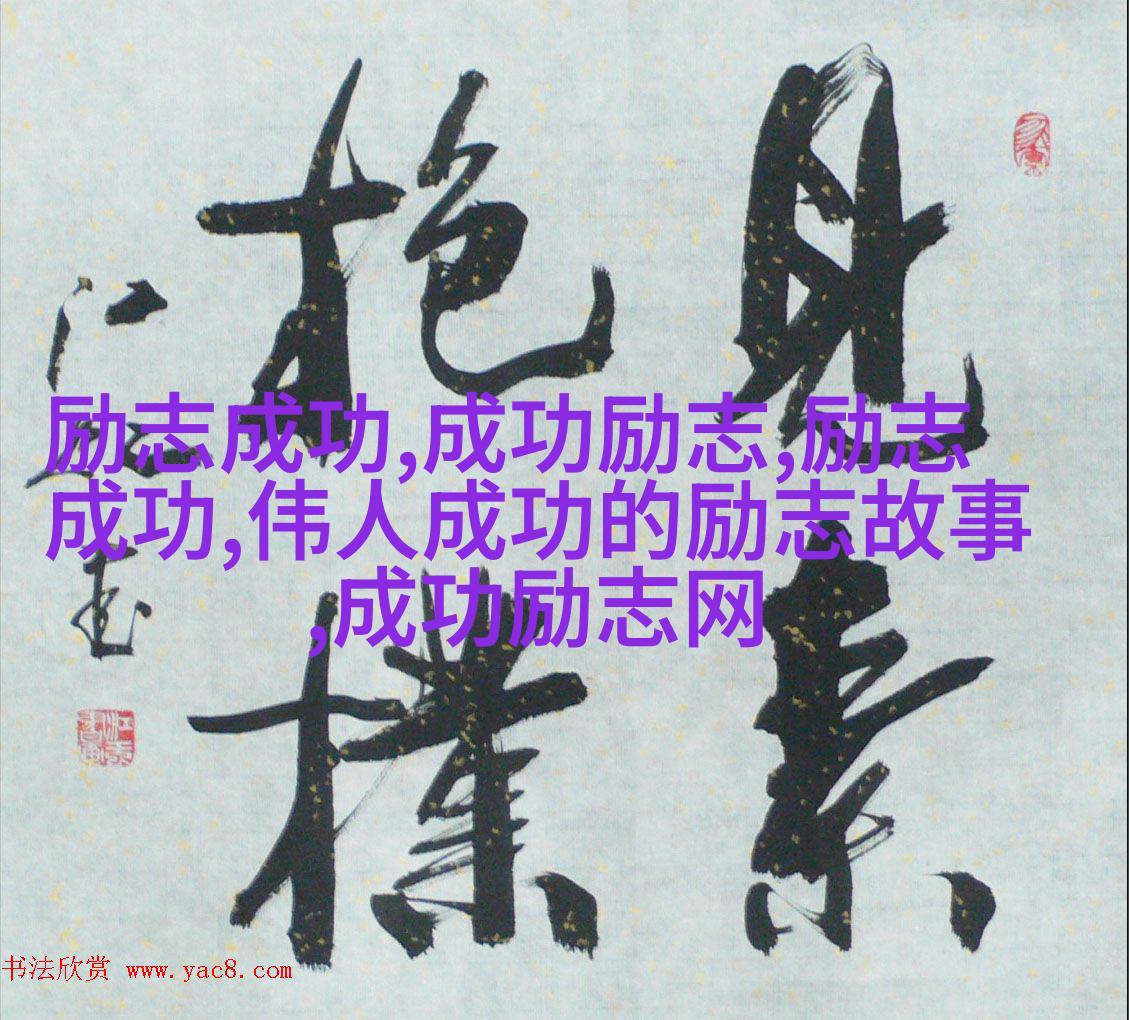 見素
抱樸
江玉
励志成功,成功励志,励志
成功,伟人成功的励志故事
,成功励志网
书法欣赏 www.yac8.com